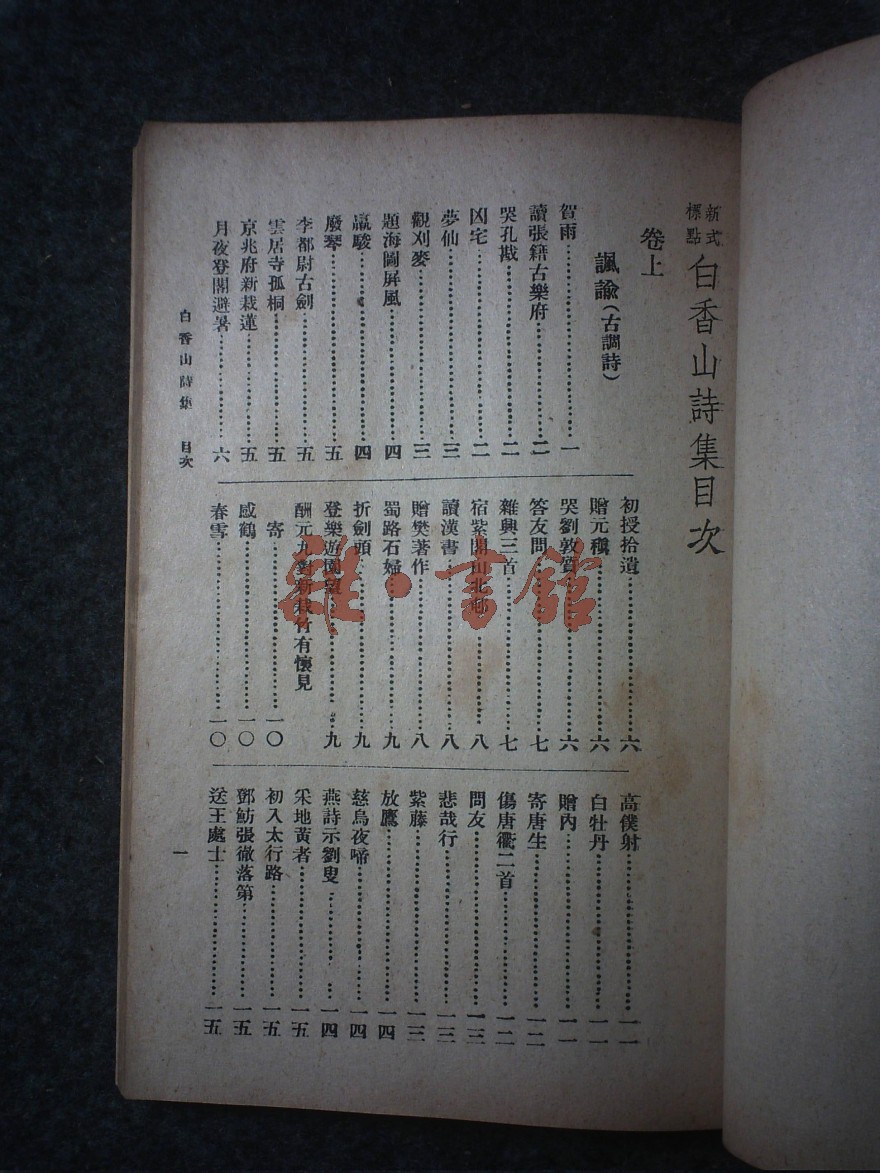 新式標點 白香山詩集目次
卷上
諷諭(古調詩)
賀雨……一
讀張籍古樂府……二
哭孔戡……二
凶宅……二
夢仙……三
觀刈麥……三
題海圖屏風……四
羸駿……四
廢琴……五
李都尉古劍……五
雲居寺孤桐……五
京兆府新栽蓮……五
月夜登閣避暑……六
初授拾遺……六
贈元稹……六
哭劉敦質……六
答友問……七
雜興三首……七
宿紫閣山北邨……八
讀漢書……八
贈樊著作……八
蜀路石婦……九
折劍頭……九
登樂遊園望……九
酬元九對新栽竹有懷見
寄……一〇
感鶴……一〇
春雪……一〇
高僕射……一一
白牡丹……一一
贈內……一一
寄唐生……一二
傷唐衢二首……一二
問友……一三
悲哉行……一三
紫藤……一三
放鷹……一四
慈烏夜啼……一四
燕詩示劉叟……一四
采地黃者……一五
初入太行路……一五
鄧魴張徹落第……一五
送王處士……一五
白香山詩集 目次
一
雜·書館